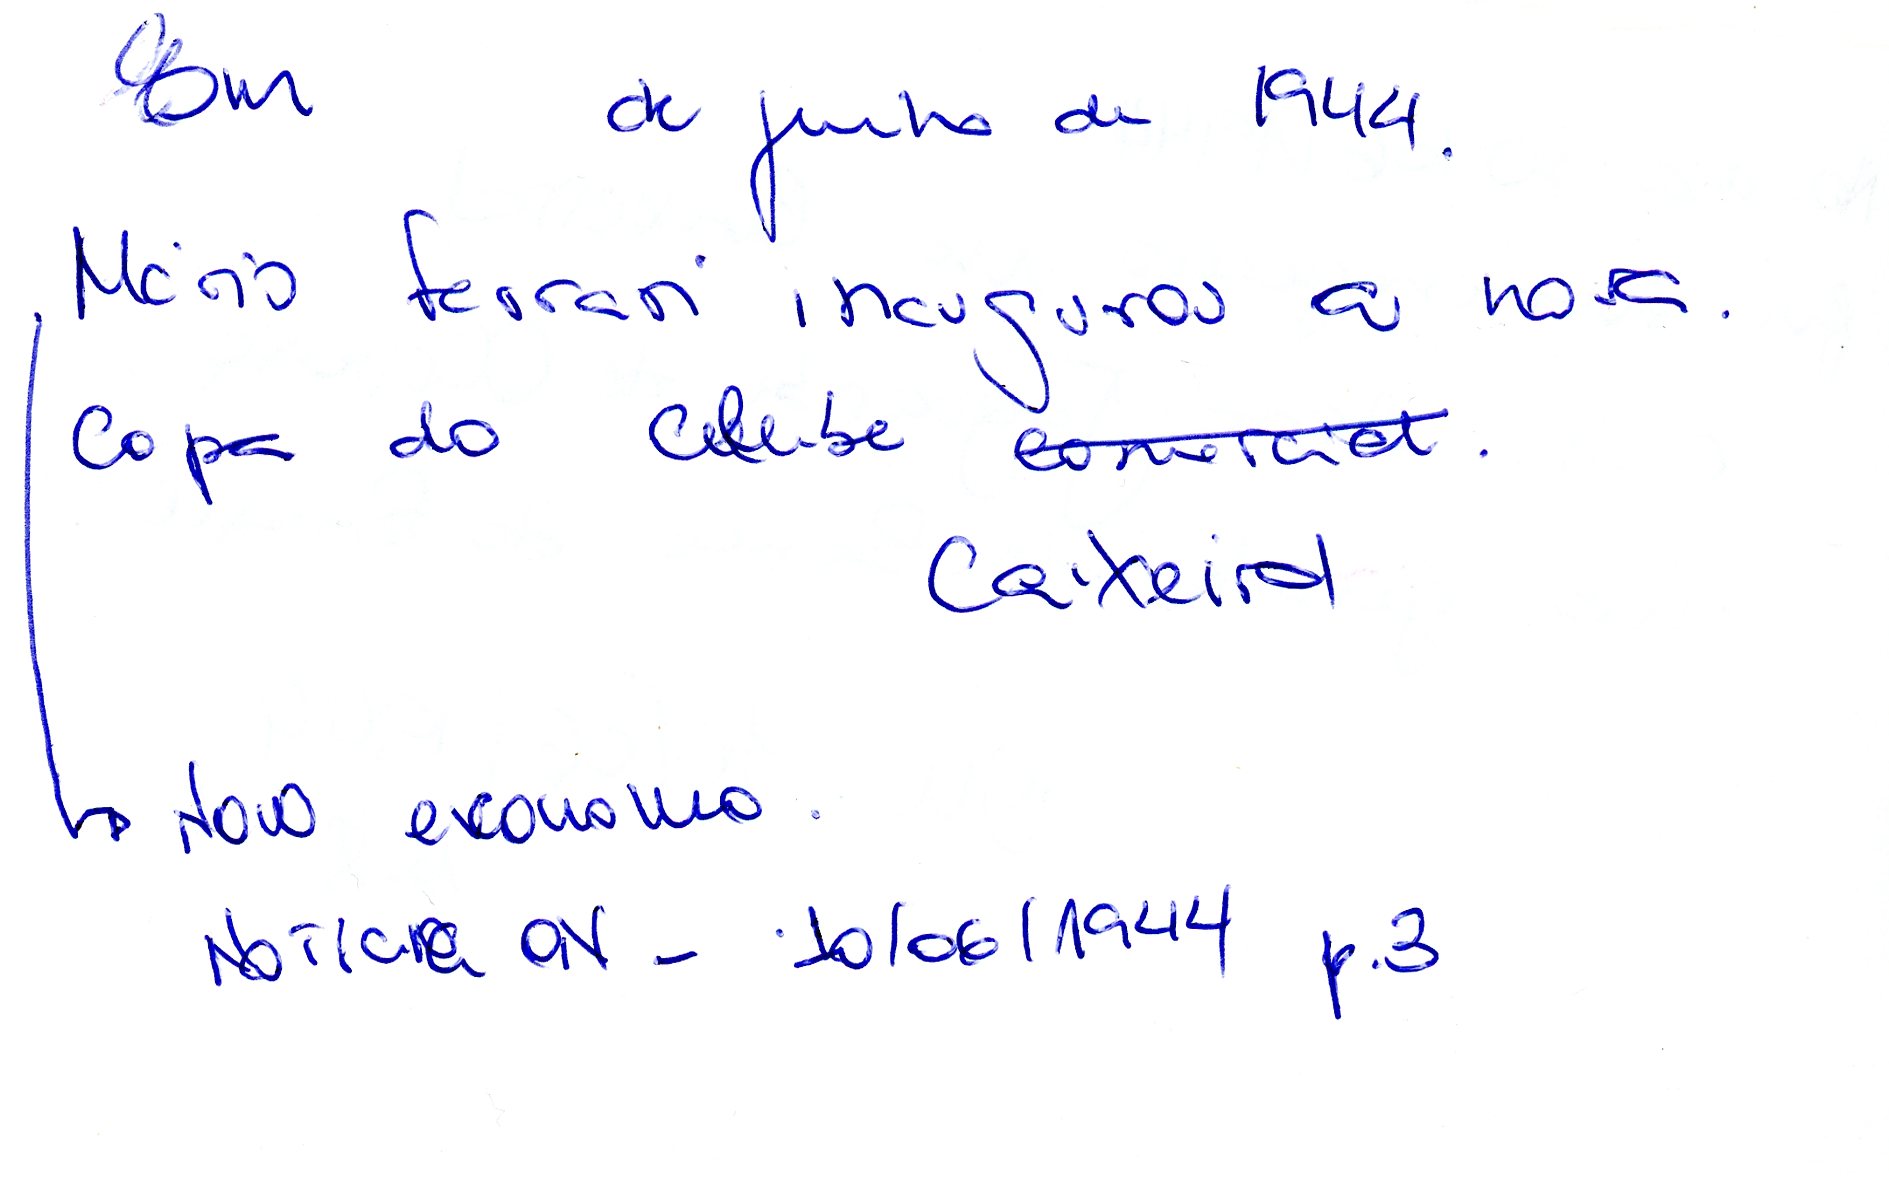 Em de junho de 1944.
Mário Ferrari inaugurou a nova.
Copa do Clube comercial.
Caixeiral
↳ Novo economo.
NOTICIA ON - 10/06/1944 p.3